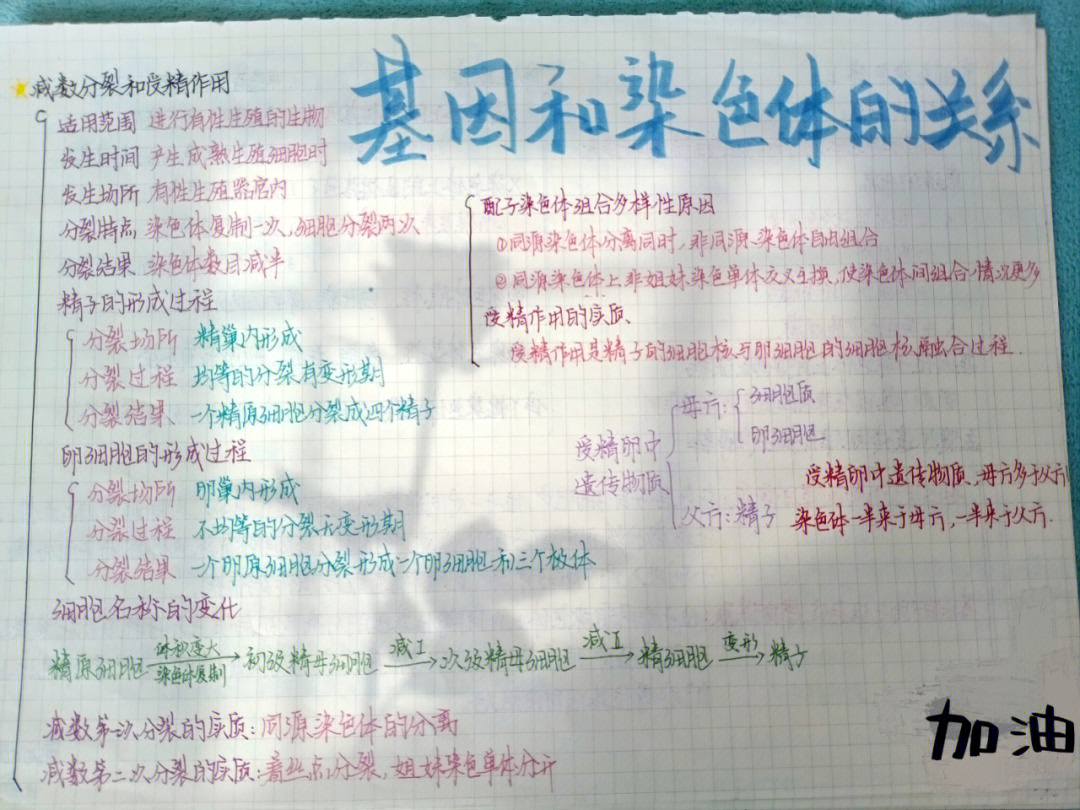 基因和染色体的关系
减数分裂和受精作用
适用范围 进行有性生殖的生物
发生时间 产生成熟生殖细胞时
发生场所 有性生殖器官内
分裂特点 染色体复制一次,细胞分裂两次
分裂结果 染色体数目减半
精子的形成过程
分裂场所 精巢内形成
分裂过程 均等的分裂有变形期
分裂结果 一个精原细胞分裂成四个精子
卵细胞的形成过程
分裂场所 卵巢内形成
分裂过程 不均等的分裂无变形期
分裂结果 一个卵原细胞分裂形成一个卵细胞和三个极体
细胞名称的变化
精原细胞 体积变大 染色体复制 → 初级精母细胞 减I → 次级精母细胞 减II → 精细胞 变形 → 精子
减数第一次分裂的实质:同源染色体的分离
减数第二次分裂的实质:着丝点分裂,姐妹染色单体分开
配子染色体组合多样性原因
①同源染色体分离同时,非同源染色体自由组合
②同源染色体上非姐妹染色单体交叉互换,使染色体间组合情况更多
受精作用的实质
受精作用是精子的细胞核与卵细胞的细胞核融合过程.
受精卵中
遗传物质
母方:
细胞质
卵细胞
父方:精子
受精卵中遗传物质,母方多于父方
染色体一半来于母方,一半来于父方.
加油